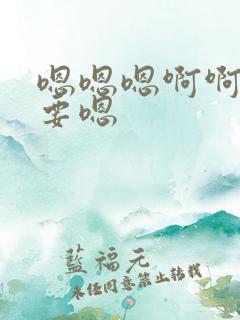 嗯嗯嗯啊啊
要嗯
藍福元
未经同意禁止转载